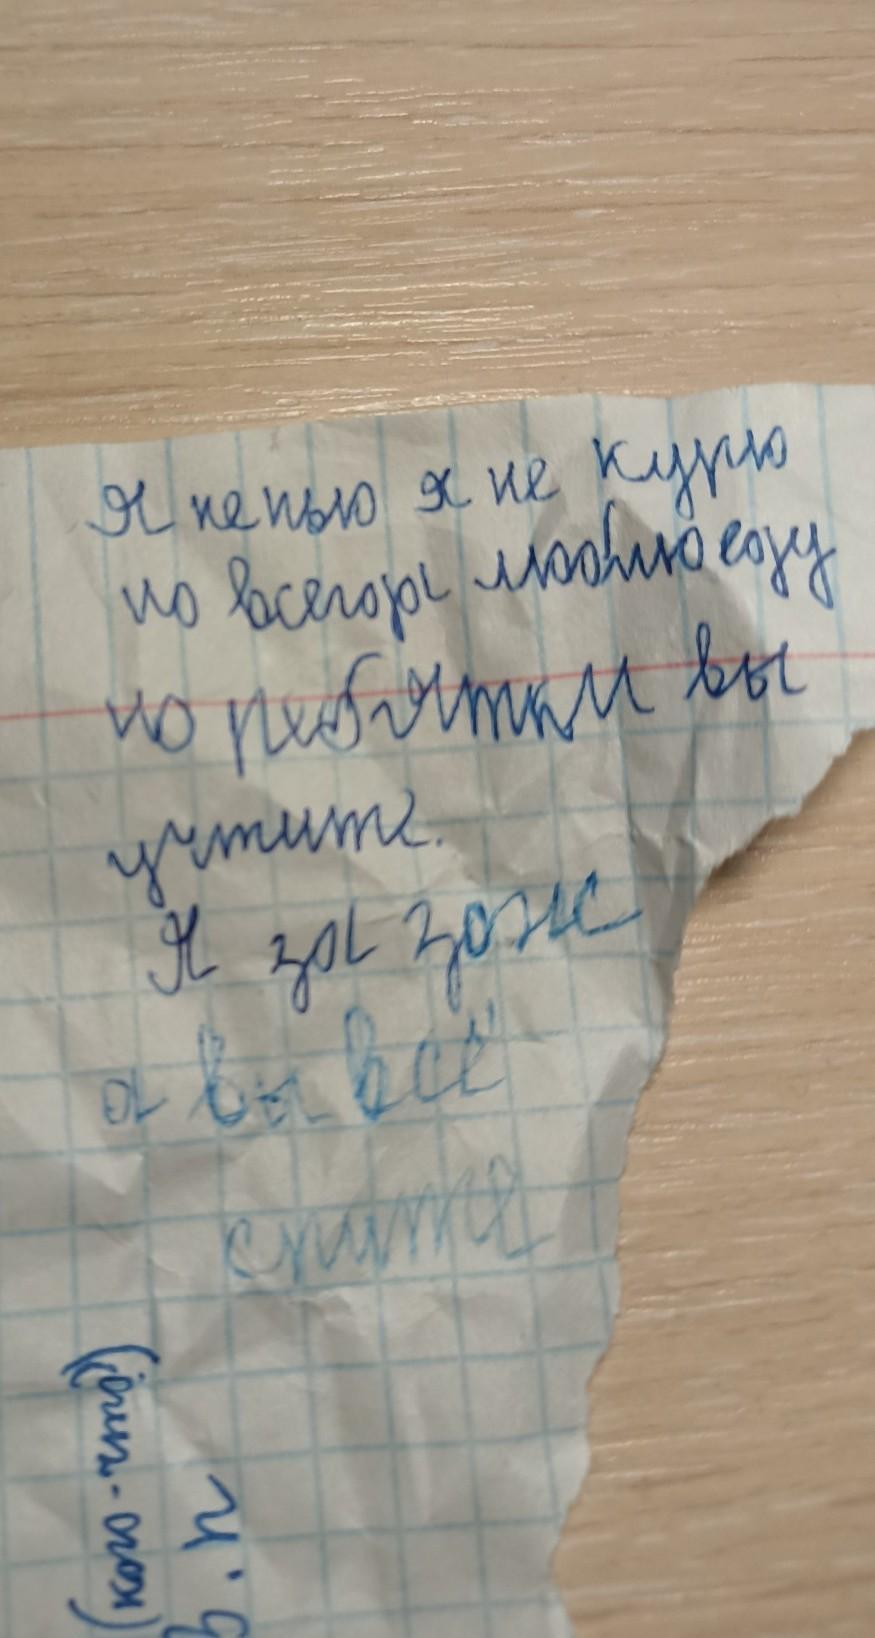 Я не пью я не курю
но всегда люблю соду
но ребятам вы
учтите.
Я за зож
а вы всё
спите
(кого-что)
в.п